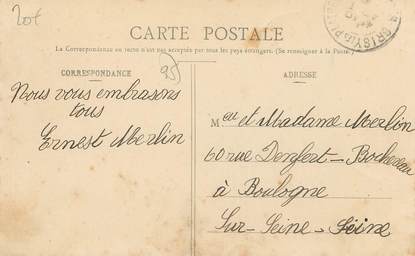 20t
CARTE POSTALE
La Correspondance au recto n'est pas acceptée par tous les pays étrangers. (Se renseigner à la Poste)
CORRESPONDANCE
95
ADRESSE
Nous vous embrasons
tous
Ernest Merlin
Meu et Madame Merlin
60 rue Denfert-Rochereau
à Boulogne
Sur-Seine-Seine